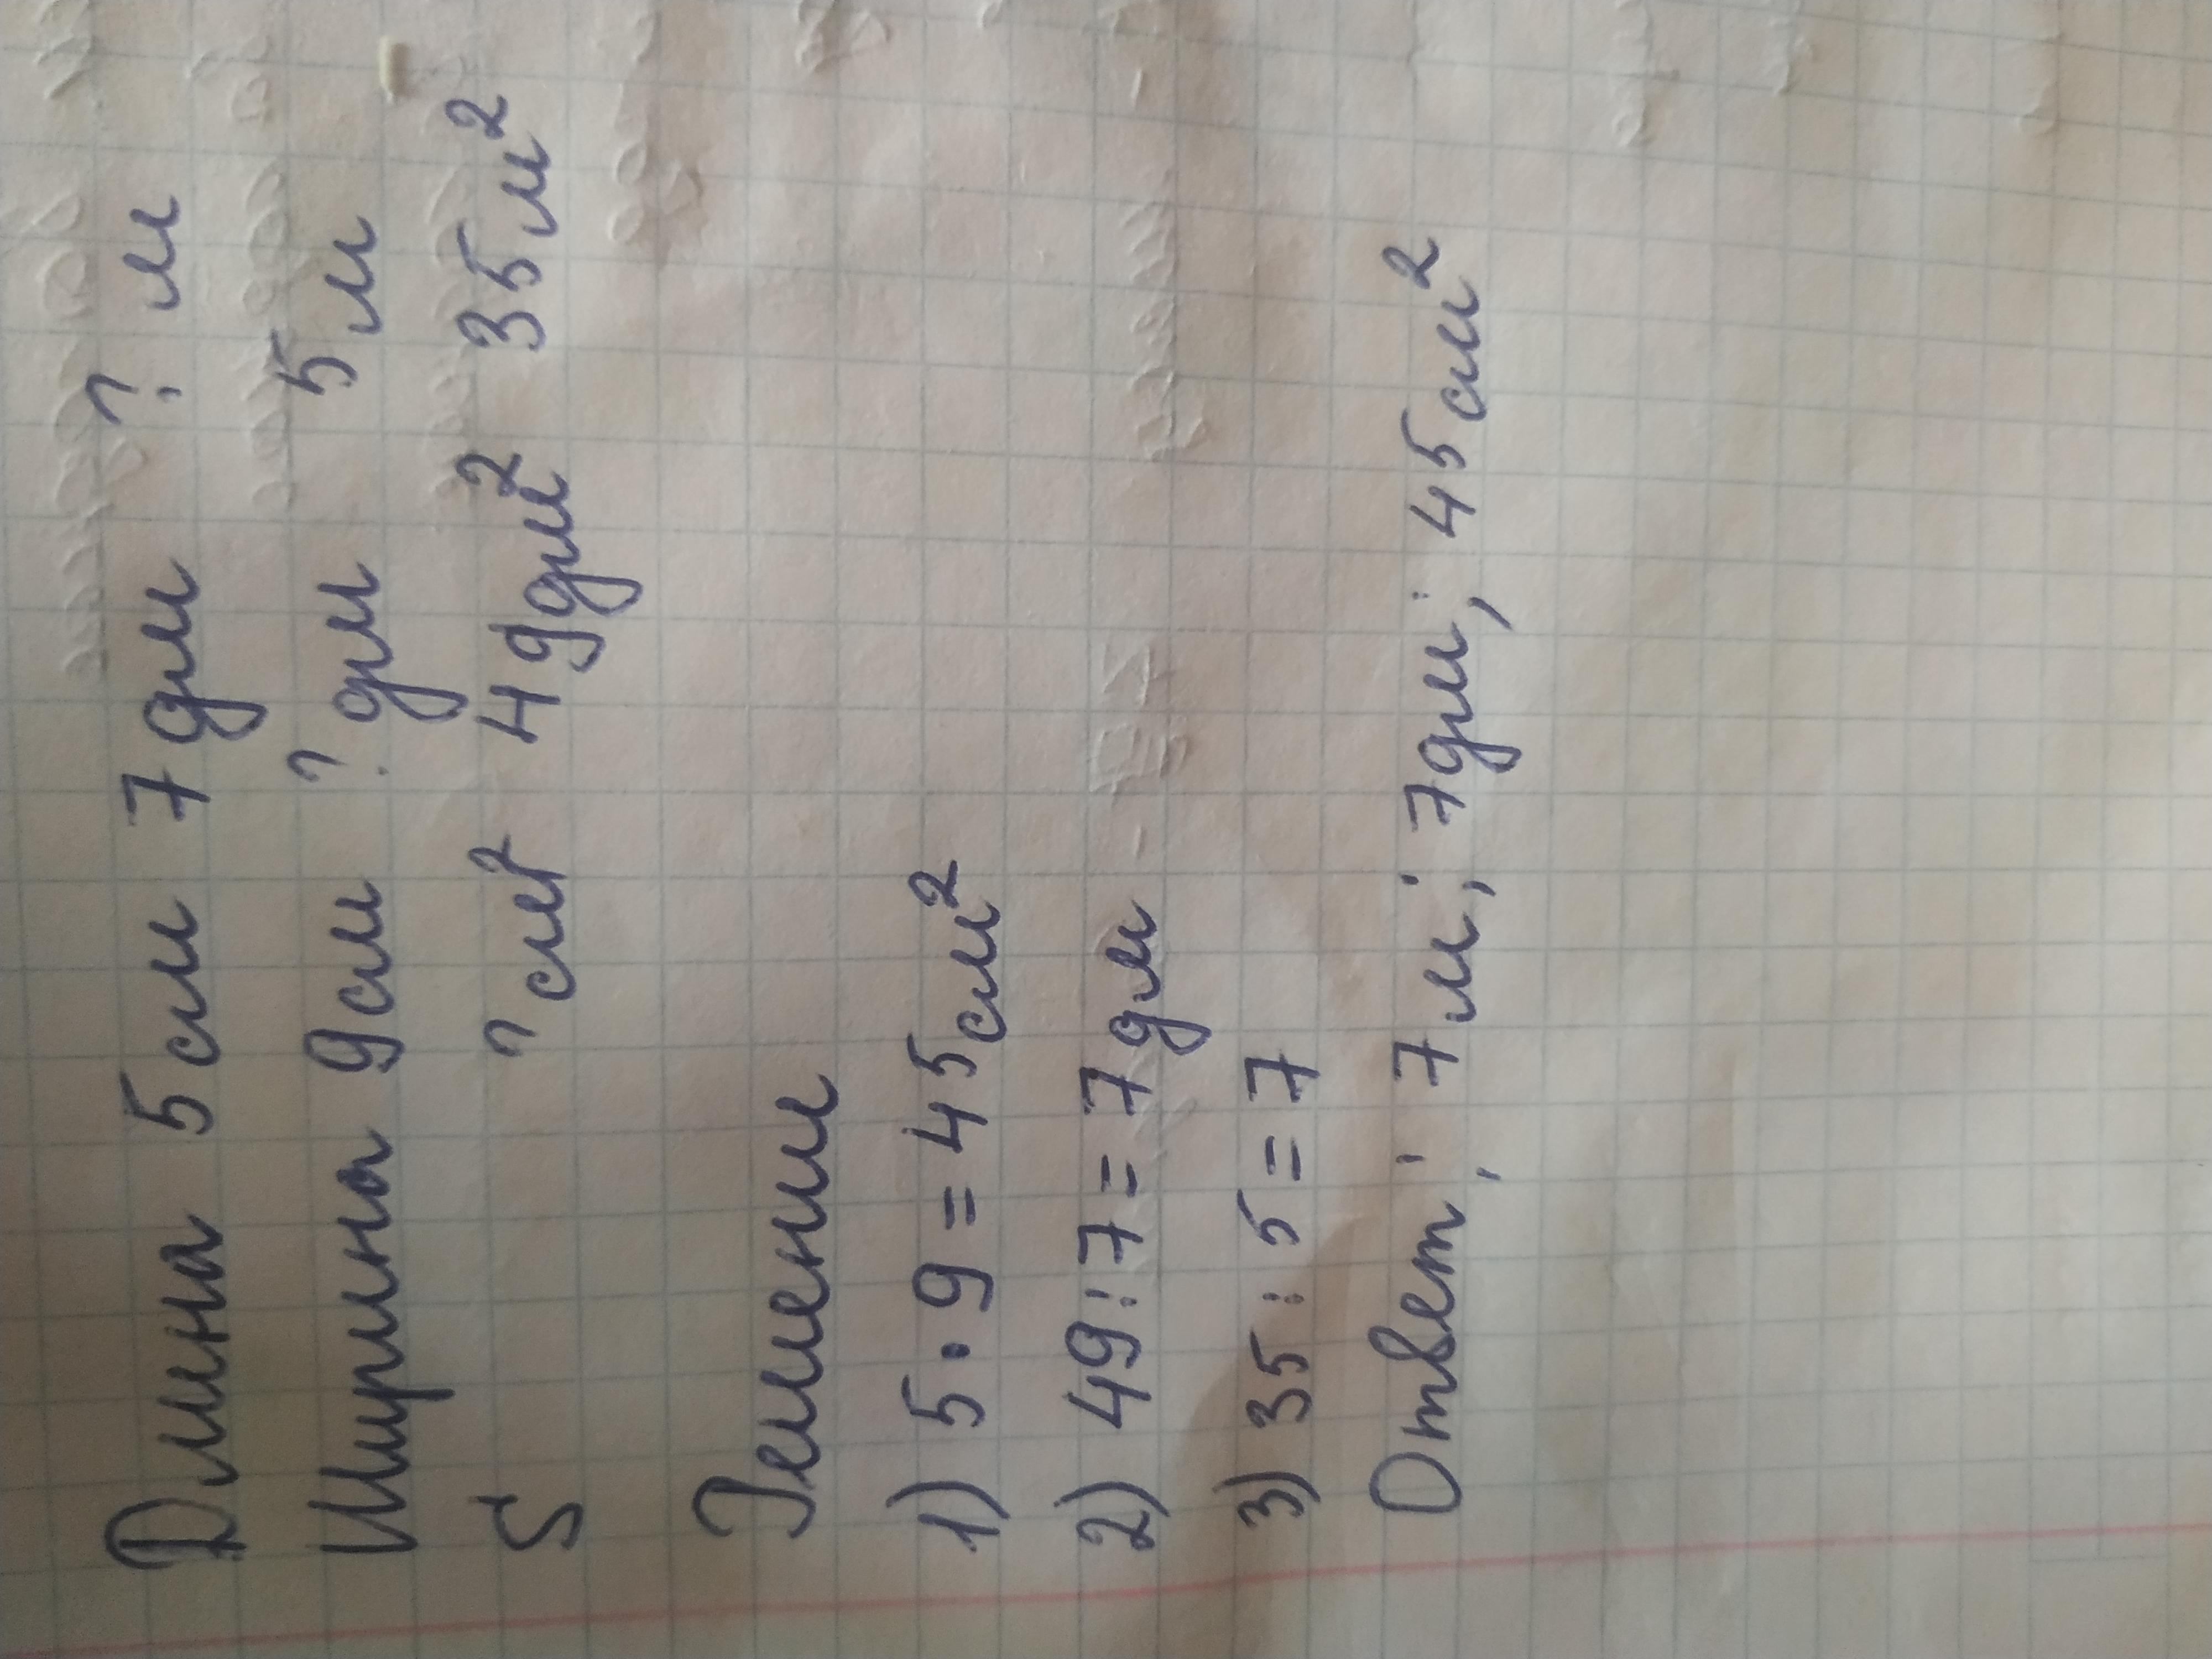 Длина 5 см 7 дм ? м
Ширина 9 см ? дм 5 м
S ? см² 49 дм² 35 м²
Решение
1) 5 · 9 = 45 см²
2) 49 : 7 = 7 дм
3) 35 : 5 = 7
Ответ; 7 м; 7 дм; 45 см²